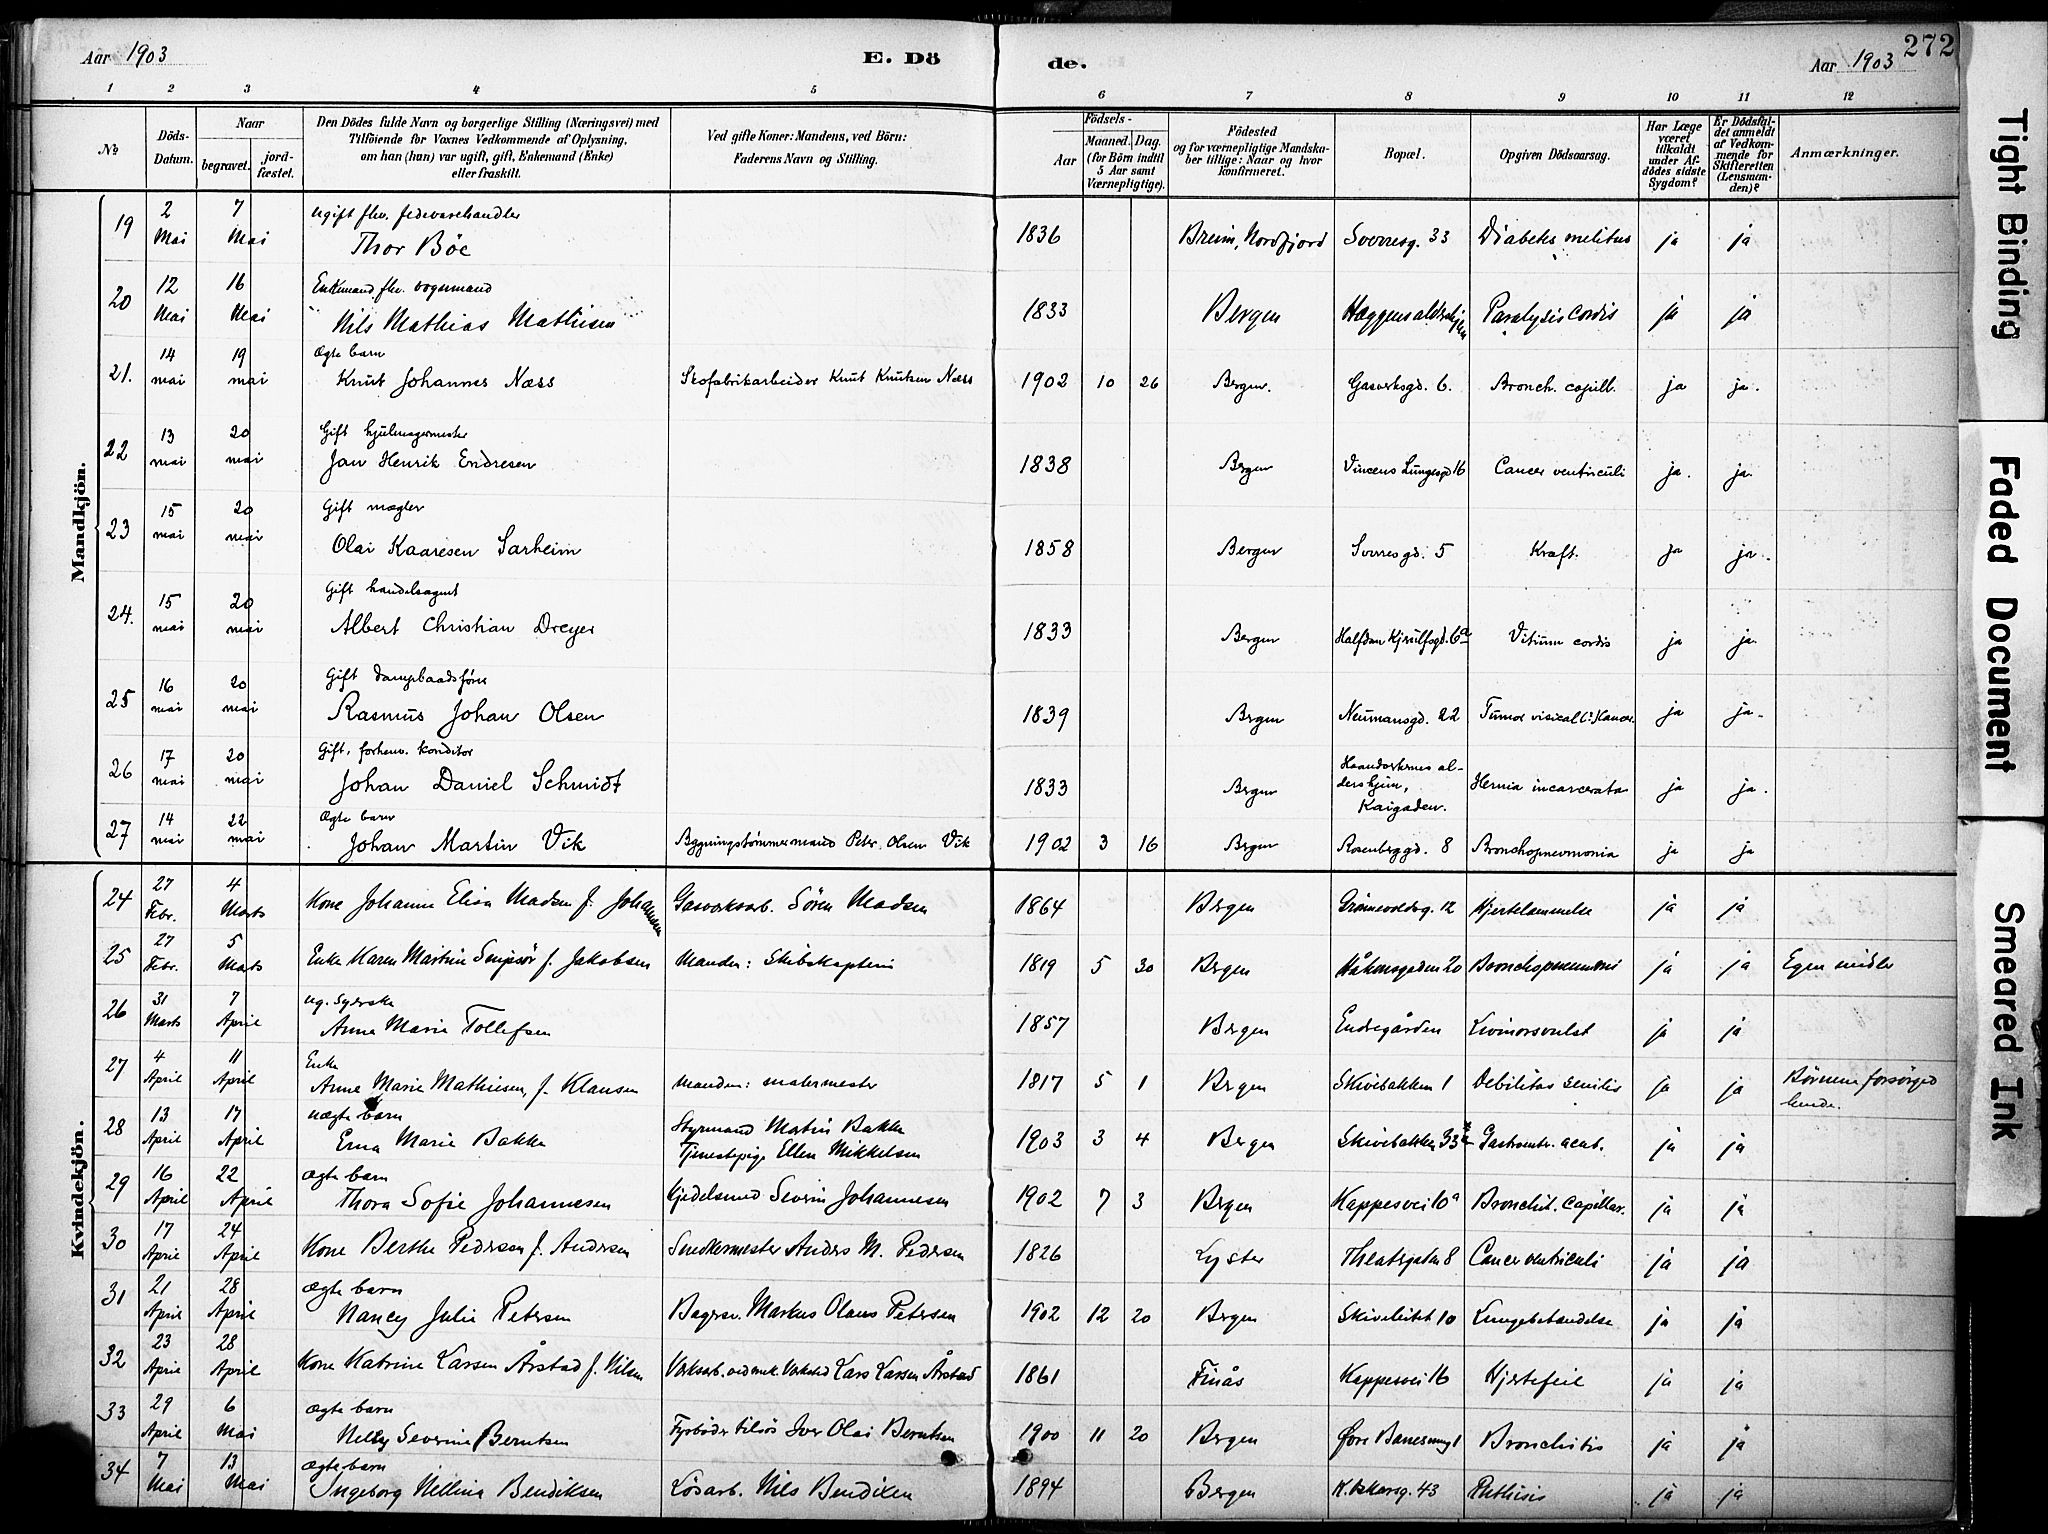 Aar 1903 E. Dö de. Aar 1903 272
1 2 3 4 5 6 7 8 9 10 11 12
No Döds-Datum. Naar begravet. jordfæstet. Den Dödes fulde Navn og borgerlige Stilling (Næringsvei) med Tilföiende for Voxnes Vedkommende af Oplysning, om han (hun) var ugift, gift, Enkemand (Enke) eller fraskilt. Ved gifte Koner: Mandens, ved Börn: Faderens Navn og Stilling. Födsels- Aar Maaned. Dag. (for Börn indtil 5 Aar samt Værnepligtige). Födested og for værnepligtige Mandskaber tillige: Naar og hvor konfirmeret. Bopæl. Opgiven Dödsaarsag. Har Læge været tilkaldt under Afdödes sidste Sygdom? Er Dödsfaldet anmeldt af Vedkommende for Skifteretten (Lensmanden)? Anmærkninger.
Mandkjön.
19 2 Mai 7 Mai ugift fhv. fedevarehandler Thor Böe 1836 Breim, Nordfjord Sverresg. 33 Diabetes melitus ja ja
20 12 Mai 16 Mai Enkemand, fhv. vognmand Nils Mathias Mathiesen 1833 Bergen Paralysis cordis ja ja
21. 14 mai 19 mai Ægte barn Knut Johannes Næss Skofabrikarbeider Knut Knutsen Næss 1902 10 26 Bergen. Gasverksgd. 6. Bronch. capill. ja ja.
22 13 mai 20 mai Gift hjulmagermester Jan Henrik Endresen 1838 Bergen Vincens Lungesgd 16 Cancer ventriculi ja. ja.
23 15 mai 20 mai Gift mægler Olai Kaaresen Sarheim 1858 Bergen Sverresgd. 5 Kræft. ja ja.
24. 15 mai 20 mai Gift handelsagent Albert Christian Dreyer 1833 Bergen Halfdan Kjerulfsgd. 6a Vitium cordis ja ja.
25 16 mai 20 mai Gift Dampbaadsfører Rasmus Johan Olsen 1839 Bergen Neumansgd. 22 Tumor ja ja.
26 17 mai 20 mai Gift, forhenv. konditor Johan Daniel Schmidt 1833 Bergen Haandverkernes aldershjem, Kaigaden. Hernia incarcerata ja ja.
27 14 mai 22 mai Ægte barn Johan Martin Vik Bygningstømmermand Peter Olsen Vik 1902 3 16 Bergen Rosenberggd. 8 Bronchopneumonia ja ja
Kvindekjön.
24 27 Febr. 4 Marts Kone Johanne Elisa Madsen f. Johannesen Gasverksarb. Sören Madsen 1864 Bergen Grönnevoldsg. 12 Hjertelammelse ja ja
25 27 Febr. 5 Marts Enke Karen Martine f. Jakobsen Manden: Skibskaptein 1819 5 30 Bergen Håkonsgaden 20 Bronchopneumoni ja ja Egne midler
26 31 Marts 7 April ug. Syerske Anna Marie Tollefsen 1857 Bergen Endregården Livmorsvulst ja ja
27 4 April 11 April Enke Anne Marie Mathiesen, f. Klausen Manden: malermester 1817 5 1 Bergen Skivebakken 1 Debilitas senilis ja ja Börnene forsörged hende.
28 13 April 17 April uægte barn Erna Marie Bakke Styrmand Martin Bakke Tjenestepige Ellen Mikkelsen 1903 3 4 Bergen Skivebakken 33 Gastroentr. acut. ja ja
29 16 April 22 April Ægte barn Thora Sofie Johannesen Kjedelsmed Severin Johannesen 1902 7 3 Bergen Kappesvei 10a Bronchit. capillar. ja ja
30 17 April 24 April Kone Berthe Pedersen f. Andersen Snedkermester Anders M. Pedersen 1826 Lyster Theatergaten 8 Cancer ventriculi ja ja
31 21 April 28 April Ægte barn Nancy Julie Petersen Bagersv. Markus Olaus Petersen 1902 12 20 Bergen 10 Lungebetændelse ja ja
32 23 April 28 April Kone Katrine Larsen Årstad f. Nilsen Verksarb. Lars Larsen Årstad 1861 Finås Kappesvei 16 Hjertefeil ja ja
33 29 April 6 Mai Ægte barn Nelly Severine Berntsen Fyrböder tilsös Iver Olai Berntsen 1900 11 20 Bergen Bronchitis ja ja
34 7 Mai 13 Mai Ægte barn Ingeborg Nelline Bendiksen Lösarb. Nils Bendixen 1894 Bergen K. Oskarsg. 43 Phthisis ja ja
Tight Binding
Faded Document
Smeared Ink